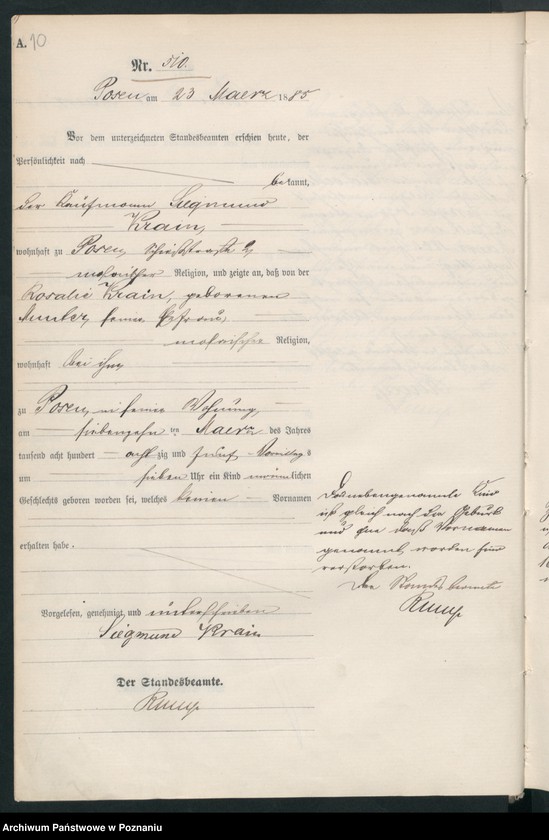 A. 10
Nr. 510.
Posen am 23 Maerz 1885
Vor dem unterzeichneten Standesbeamten erschien heute, der
Persönlichkeit nach
bekannt,
der Kaufmann Siegmund
Krain,
wohnhaft zu Posen, 2,
mosaischer Religion, und zeigte an, daß von der
Rosalie Krain, geborenen
Munter, seine Ehefrau,
mosaischer Religion,
wohnhaft bei ihm
zu Posen, in seiner Wohnung,
am siebenzehnten Maerz des Jahres
tausend acht hundert achtzig und fünf Vormittags
um sieben Uhr ein Kind männlichen
Geschlechts geboren worden sei, welches keinen Vornamen
erhalten habe.
Vorgelesen, genehmigt und unterschrieben
Siegmund Krain
Der Standesbeamte.
Das nebengenannte Kind
ist gleich nach der Geburt
und ohne daß Vornamen
genannt worden sind
verstorben.
Der Standesbeamte
Archiwum Państwowe w Poznaniu